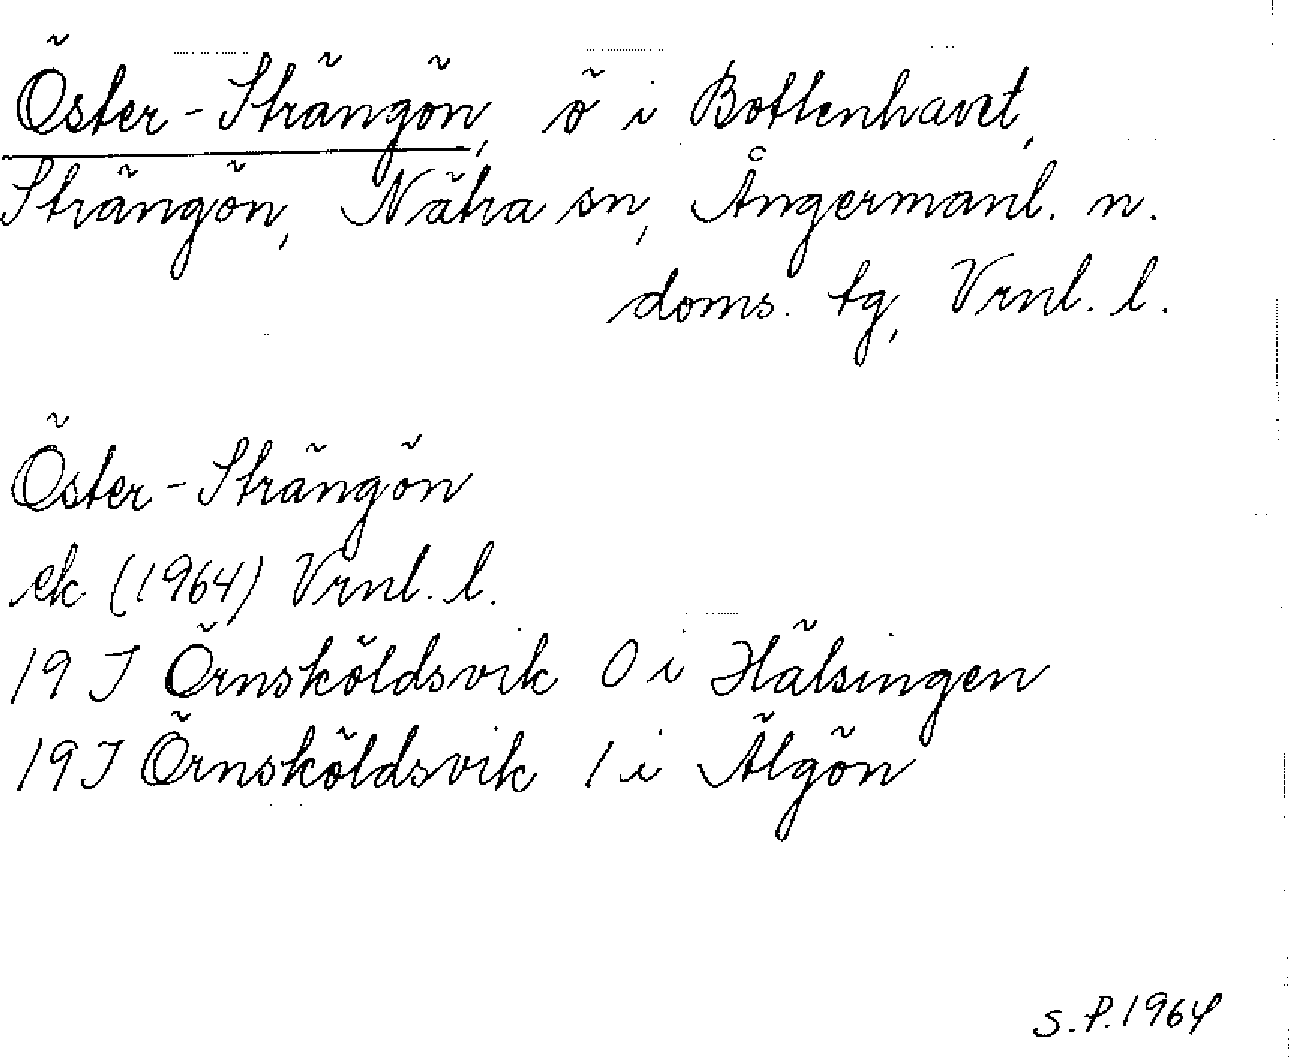 Öster-Strängön, ö i Bottenhavet,
Strängön, Nätra sn, Ångermanl. n.
doms. tg, Vrnl. l.
Öster-Strängön
ek (1964) Vrnl. l.
19 J Örnsköldsvik 0 i Hälsingen
19 J Örnsköldsvik 1 i Älgön
S.P. 1964